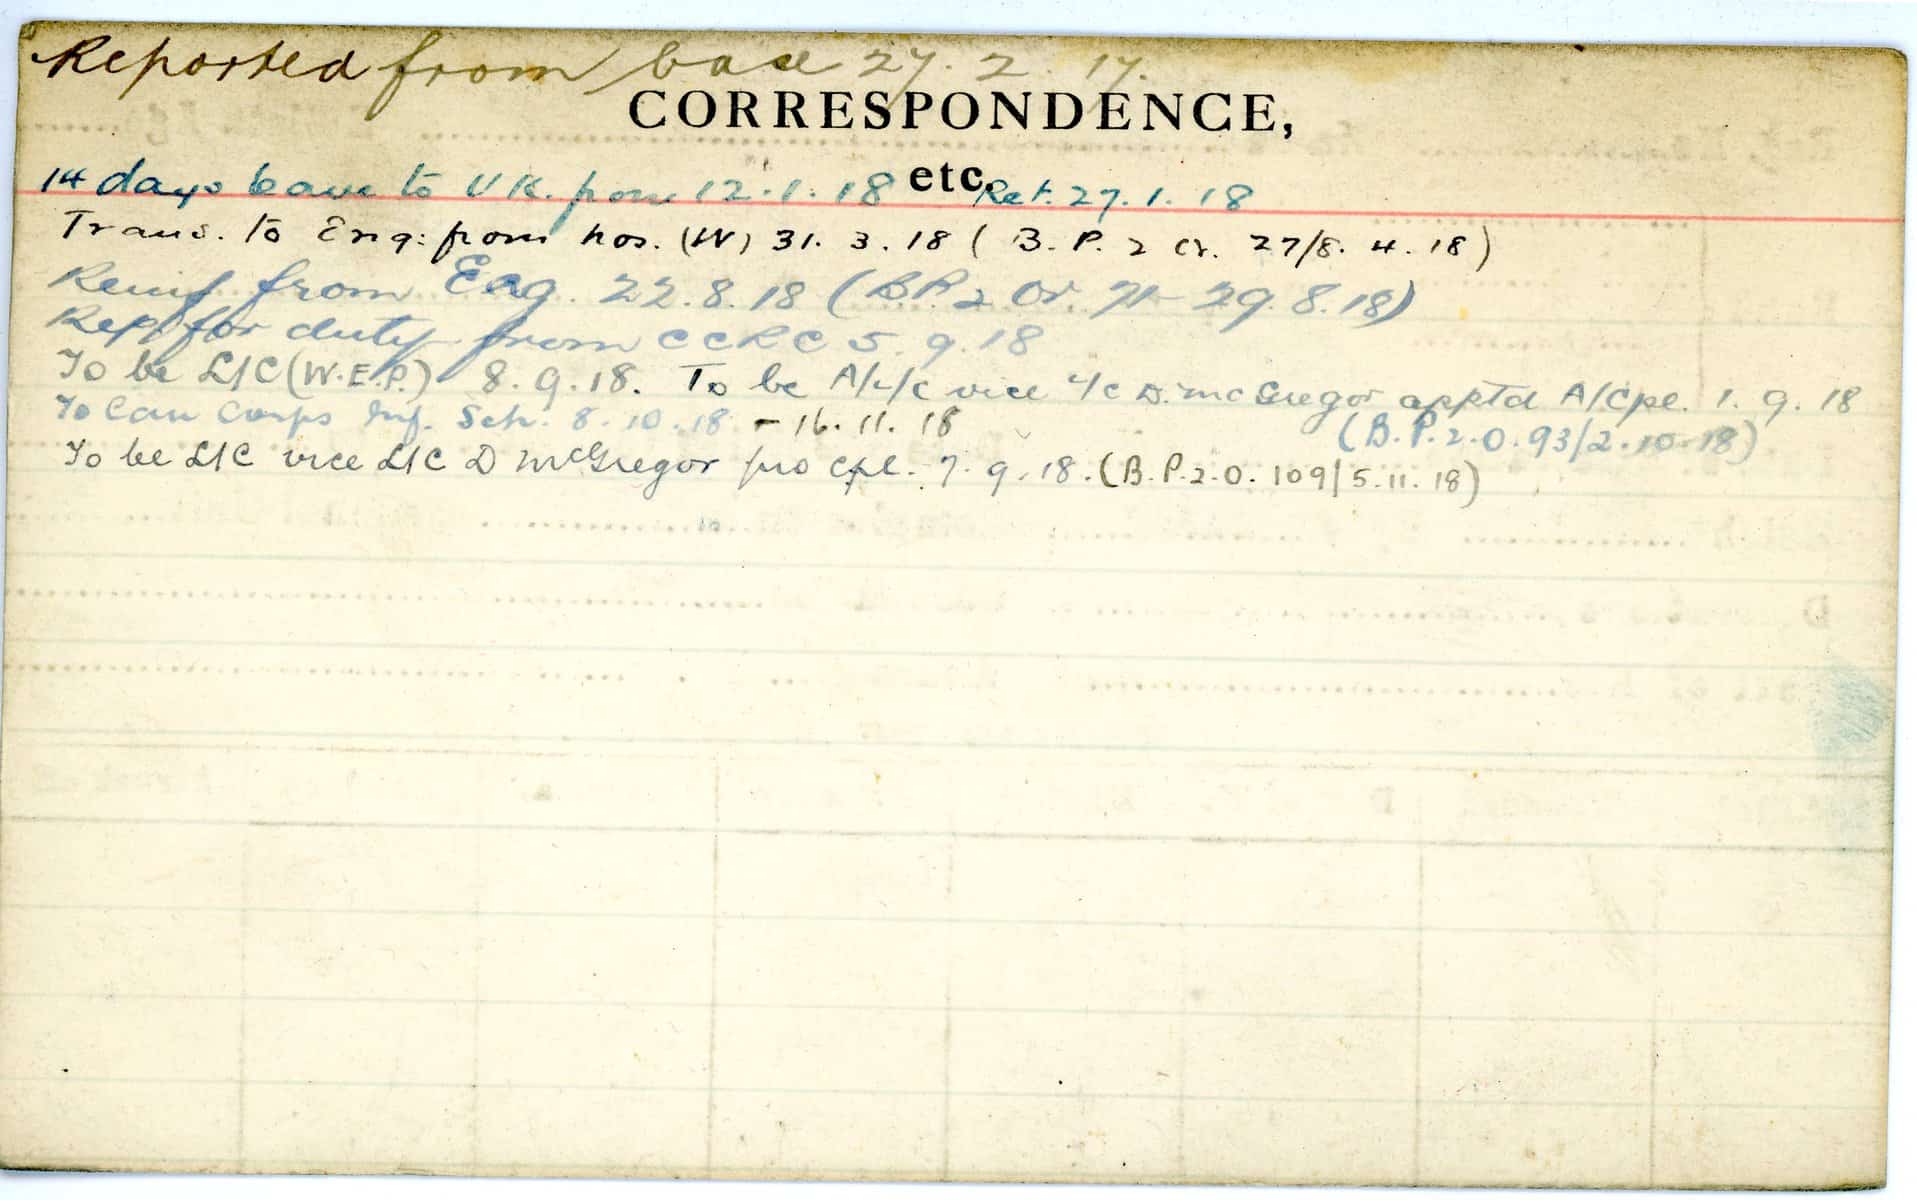 Reported from base 27. 2. 17.
CORRESPONDENCE,
etc.
14 days leave to UK. from 12.1.18 Ret. 27.1.18
Trans. to Eng: from hos. (W) 31. 3. 18 (B. P. 2 Or. 27/8. 4. 18)
Reinf from Eng. 22.8.18 (B.P. 2 Or. 71- 29.8.18)
Rep. for duty from CCRC 5.9.18
To be L/C (W.E.P.) 8.9.18. To be A/L/C vice L/C D. McGregor apptd A/Cpl. 1. 9. 18
(B.P.2.O.93/2.10.18)
To Can Corps Inf. Sch. 8.10.18 - 16.11.18
To be L/C vice L/C D McGregor pro Cpl. 7.9.18. (B.P.2.O. 109/5.11.18)